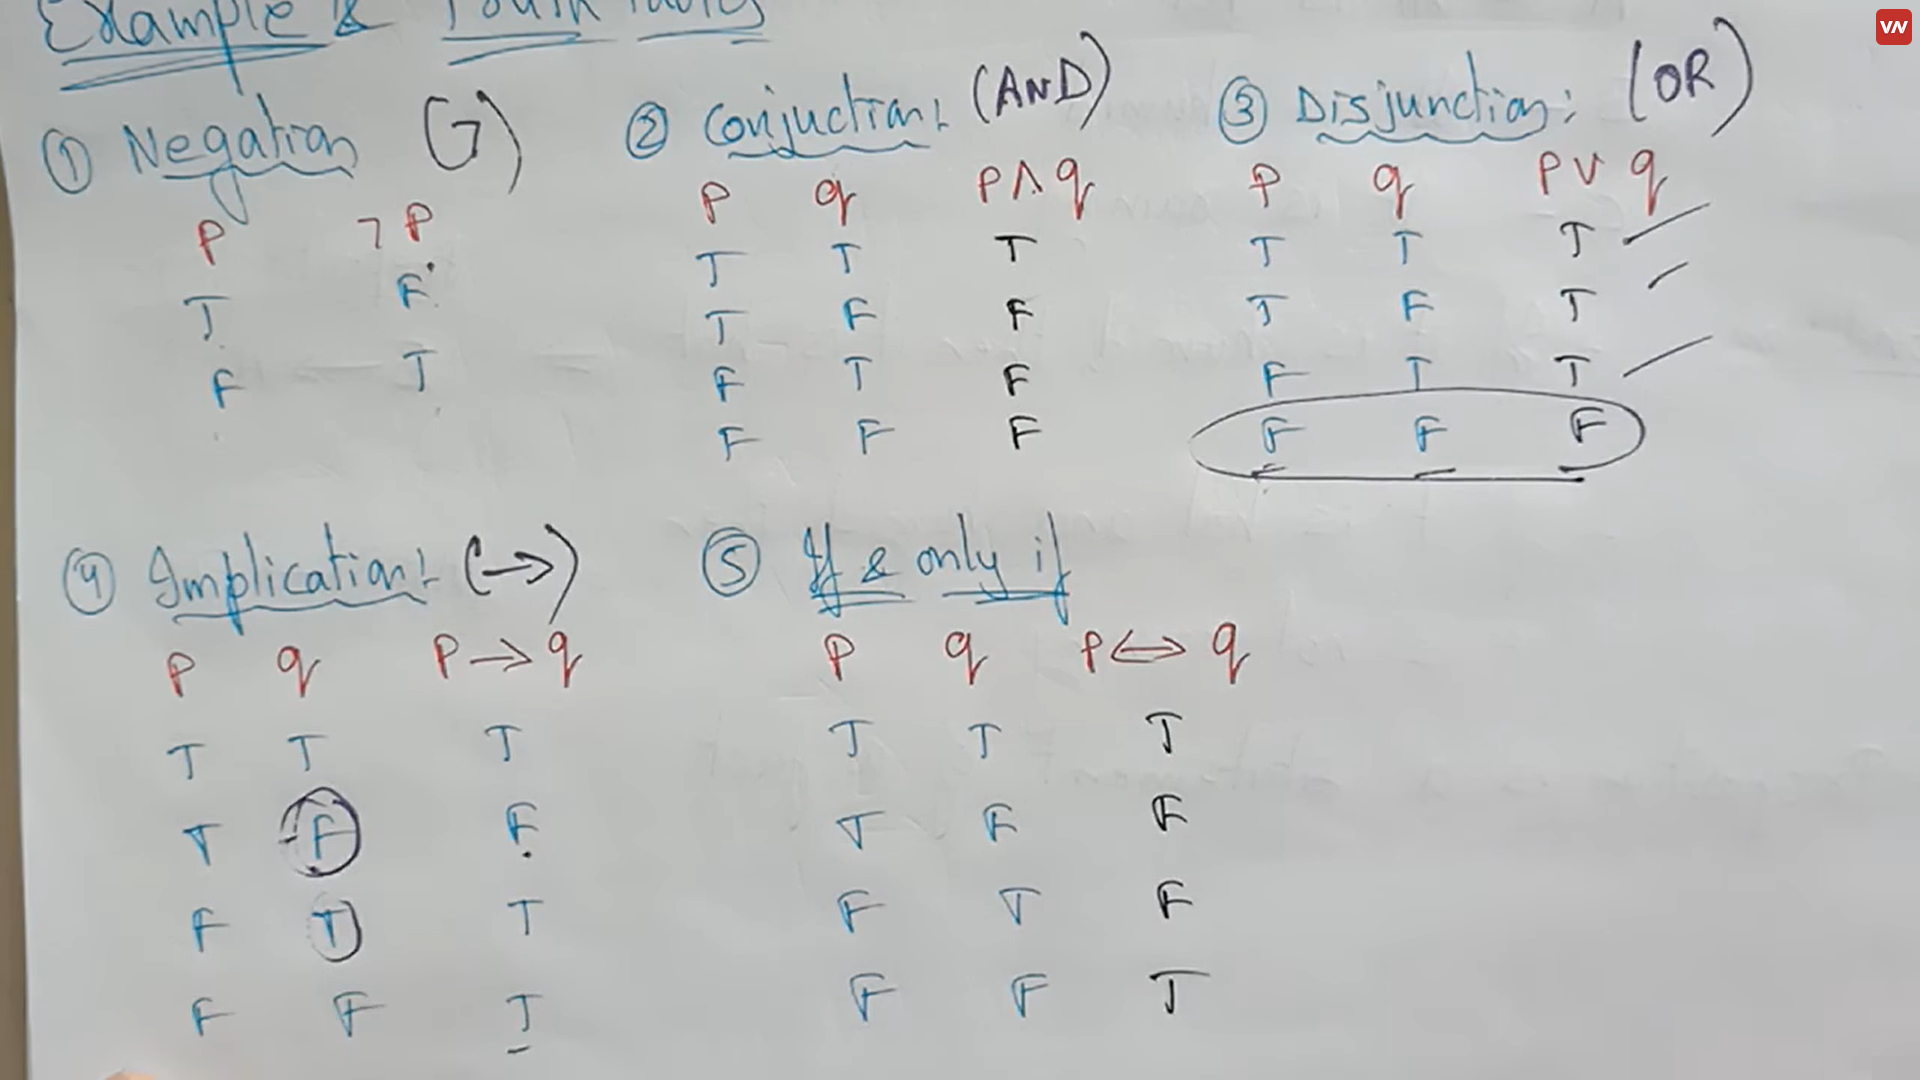 Example & Truth Tables
① Negation (¬)
P ¬P
T F
F T
② Conjuction: (AND)
P q P∧q
T T T
T F F
F T F
F F F
③ Disjunction: (OR)
P q P∨q
T T T
T F T
F T T
F F F
④ Implication: (→)
P q P→q
T T T
T F F
F T T
F F T
⑤ If & only if
P q P⟷q
T T T
T F F
F T F
F F T
VN